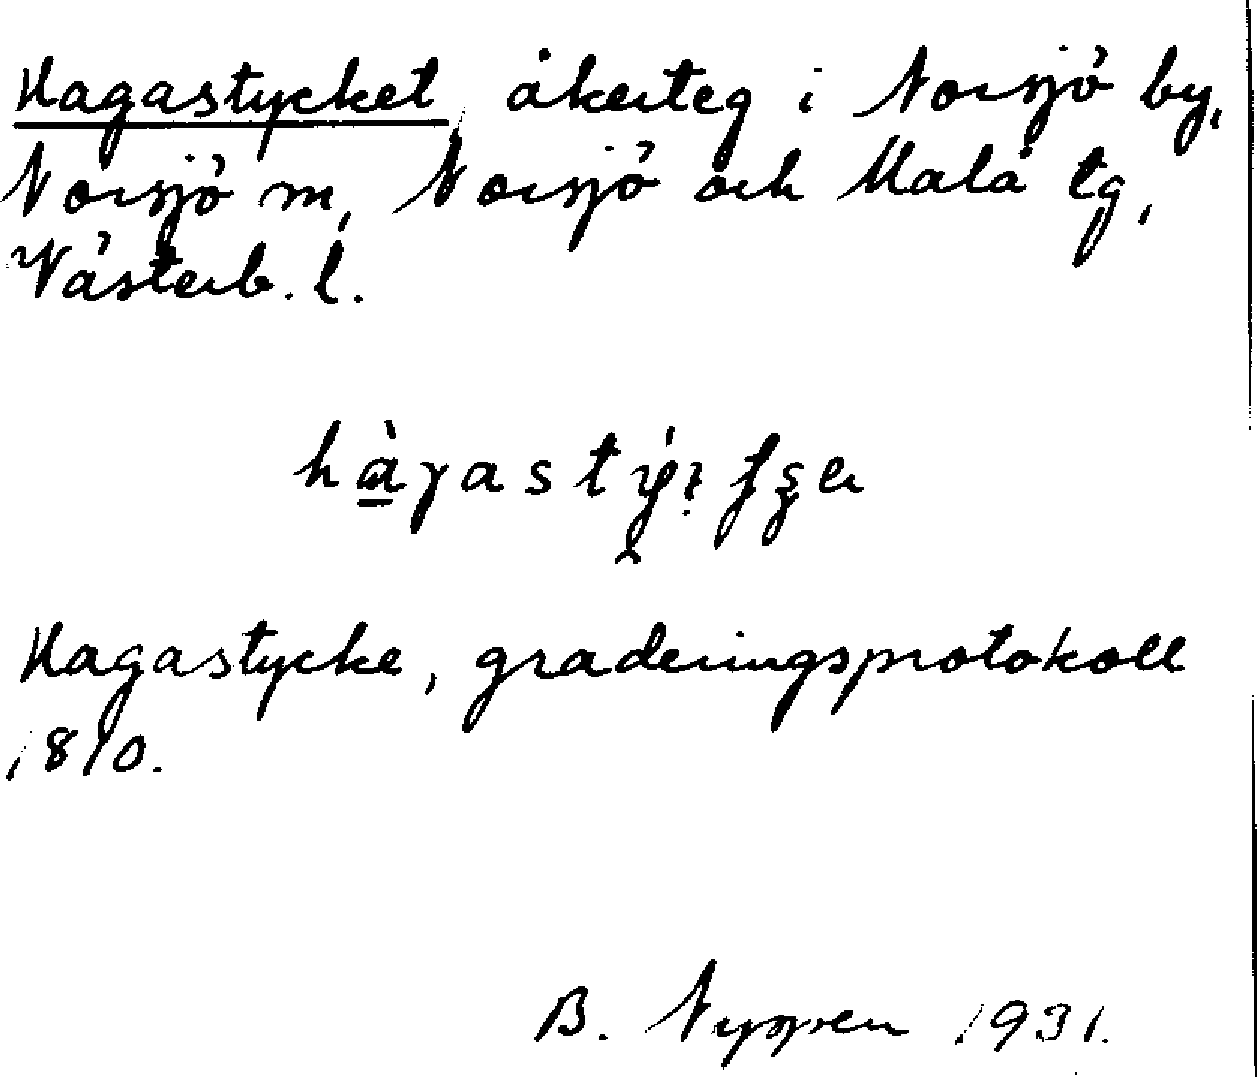 Hagastycket, åkerteg i Norsjö by,
Norsjö sn, Norsjö och Malå tg,
Västerb. l.
Hagastycke, graderingsprotokoll
1810.
B. 1931.